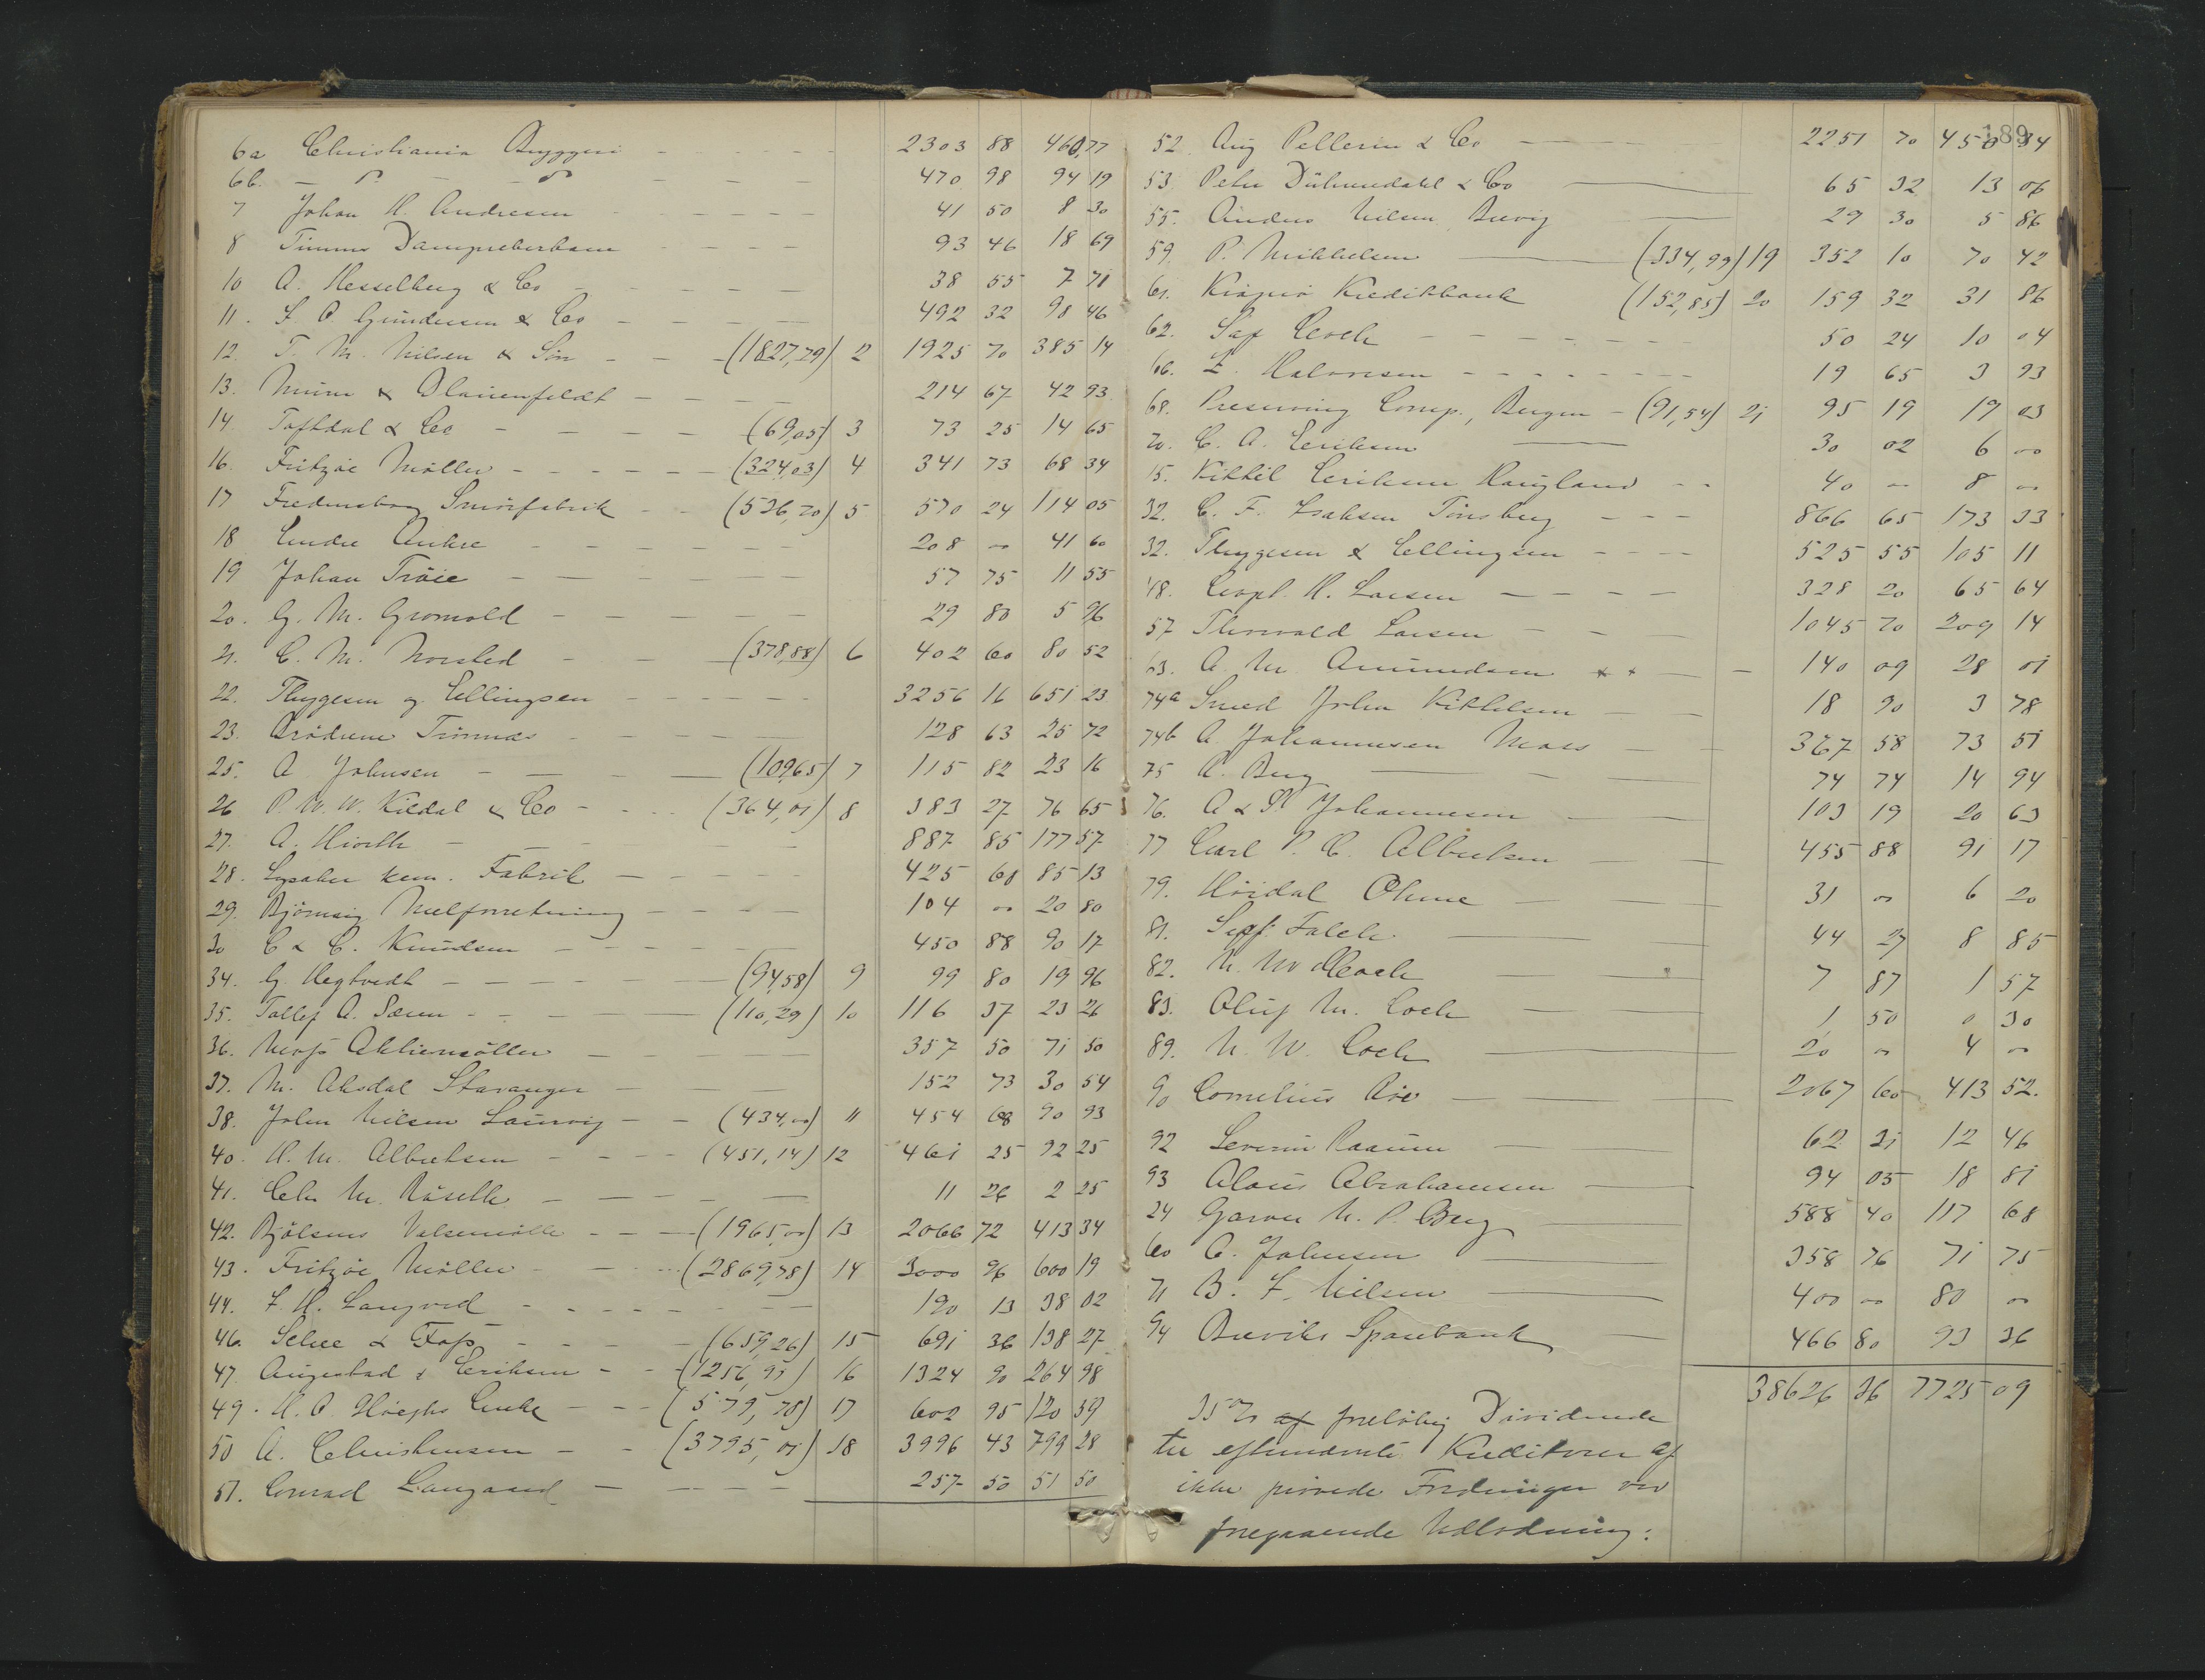 6a Christiania Bryggeri - - - - - - 2303 88 460,77
6b. - do - - do - - - 470 98 94 19
7 Johan H. Andresen - - - - 41 50 8 30
8 Timms Dampreberbane - - - - 93 46 18 69
10 A. Hesselberg & Co - - - - - 38 55 7 71
11. S. O. Gundersen & Co - - - - 492 32 98 46
12. T. M. Nilsen & Søn - - - (1827,79) 2 1925 70 385 14
13. Munn & Blauenfeldt - - - - 214 67 42 93
14. Toftdal & Co - - - - (69,05) 3 73 25 14 65
16. Fritzøe Møller - - - - - - (324,03) 4 341 73 68 34
17 Fredensborg Smørfabrik - - (536,70) 5 570 24 114 05
18 Endre Ankre - - - - - - 208 00 41 60
19 Johan Trøie - - - - - - 57 75 11 55
20. G. M. Gromold - - - - - - 29 80 5 96
21. C. M. Norsted - - - (378,88) 6 402 60 80 52
22. Thygesen og Ellingsen - - - - - - 3256 16 651 23
23. Brødrene Timmas - - - - - 128 63 25 72
25. A Johnsen - - - - (109,65) 7 115 82 23 16
26 P. W. W. Kildal & Co - - - (364,01) 8 383 27 76 65
27. A. Hiorth - - - - - 887 85 177 57
28. Lysaker kem. Fabrik - - - - - 425 68 85 13
29. Bjørnsig Melforretning - - - - 104 00 20 80
30 C & C. Knudsen - - - - - - 450 88 90 17
34. G. Hegtvedt - - - - - - (94,58) 9 99 80 19 96
35. Tallef A. Særen - - - - - (110,29) 10 116 37 23 26
36. Moss Aktiemøller - - - - 357 50 71 50
37. M. Aksdal Stavanger - 152 73 30 54
38. John Nilsen Laurvig - - (434,00) 11 454 68 90 93
40. H. M. Albretsen - - - - (451,14) 12 461 25 92 25
41. Chr M. Røselle - - - - - 11 26 2 25
42. Bjølsens Valsemølle - - - (1965,00) 13 2066 72 413 34
43. Fritzøe Møller - - - (2869,78) 14 3000 96 600 19
44. F. H. Langved - - - - - - - 190 13 38 02
46. Schee & Foss - - - - - (659,26) 15 691 36 138 27
47. Augestad & Eriksen - - (1256,93) 16 1324 90 264 98
49. H. P. Høeghs Enke - - - (579,78) 17 602 95 120 59
50 A. Christensen - - (3795,01) 18 3996 43 799 28
51. Conrad Langaard - - - - - 257 50 51 50
189
52. Aug Pellerin & Co - - - - 2251 70 450 34
53. Peter Dührendahl & Co - 65 32 13 06
55. Anders Nilsen, Brevig - 29 30 5 86
59. P. Mikkelsen - (334,99) 19 352 10 70 42
61. Kragerø Kreditbank (152,85) 20 159 32 31 86
62. Sax Cock - - - - - - - 50 24 10 04
66. L. Halvorsen - - - - - - - - 19 65 3 93
68. Preserving Comp., Bergen - (91,54) 21 95 19 19 03
70. C. A. Eriksen - 30 02 6 00
15. Kittil Eriksen Haugland - - 40 00 8 00
32. C. F. Isaksen Tønsberg - - - 866 65 173 33
32. Thygesen & Ellingsen - - - - 525 55 105 11
48. Cropl. H. Larsen - - - - - 328 20 65 64
57 Thorvald Larsen - - - 1045 70 209 14
63. A. M. Amundsen - - 140 09 28 01
74a Smed John Kittelsen - - 18 90 3 78
74b A Johannesen Moss - - 367 58 73 51
75 A. Berg - - - 74 74 14 94
76. A & N Johannesen - - 103 19 20 63
77 Carl P. C. Albretsen - - 455 88 91 17
79. Høidal Ohme - - 31 00 6 20
81. Sigf. Falch. - - 44 27 8 85
82. N. W. Coch - - 7 87 1 57
83. Oluf M. Coch - - 1 50 0 30
89. N. W. Coch - 20 00 4 00
90 Cornelius Roe - - 2067 60 413 52.
92 Severin Raaum - 62 31 12 46
93 Claus Abrahamsen - 94 05 18 81
24 Garver N. P. Berg - 588 40 117 68
60 C. Johnsen - 358 76 71 75
71 B. F. Nilsen - 400 00 80 00
94 Breviks Sparebank - 466 80 93 36
38626 36 7725 09
35 % af foreløbig Dividende
til eftermeldte Kreditorer af
ikke prøvede Fordringer ved
foregaaende Udlodning: